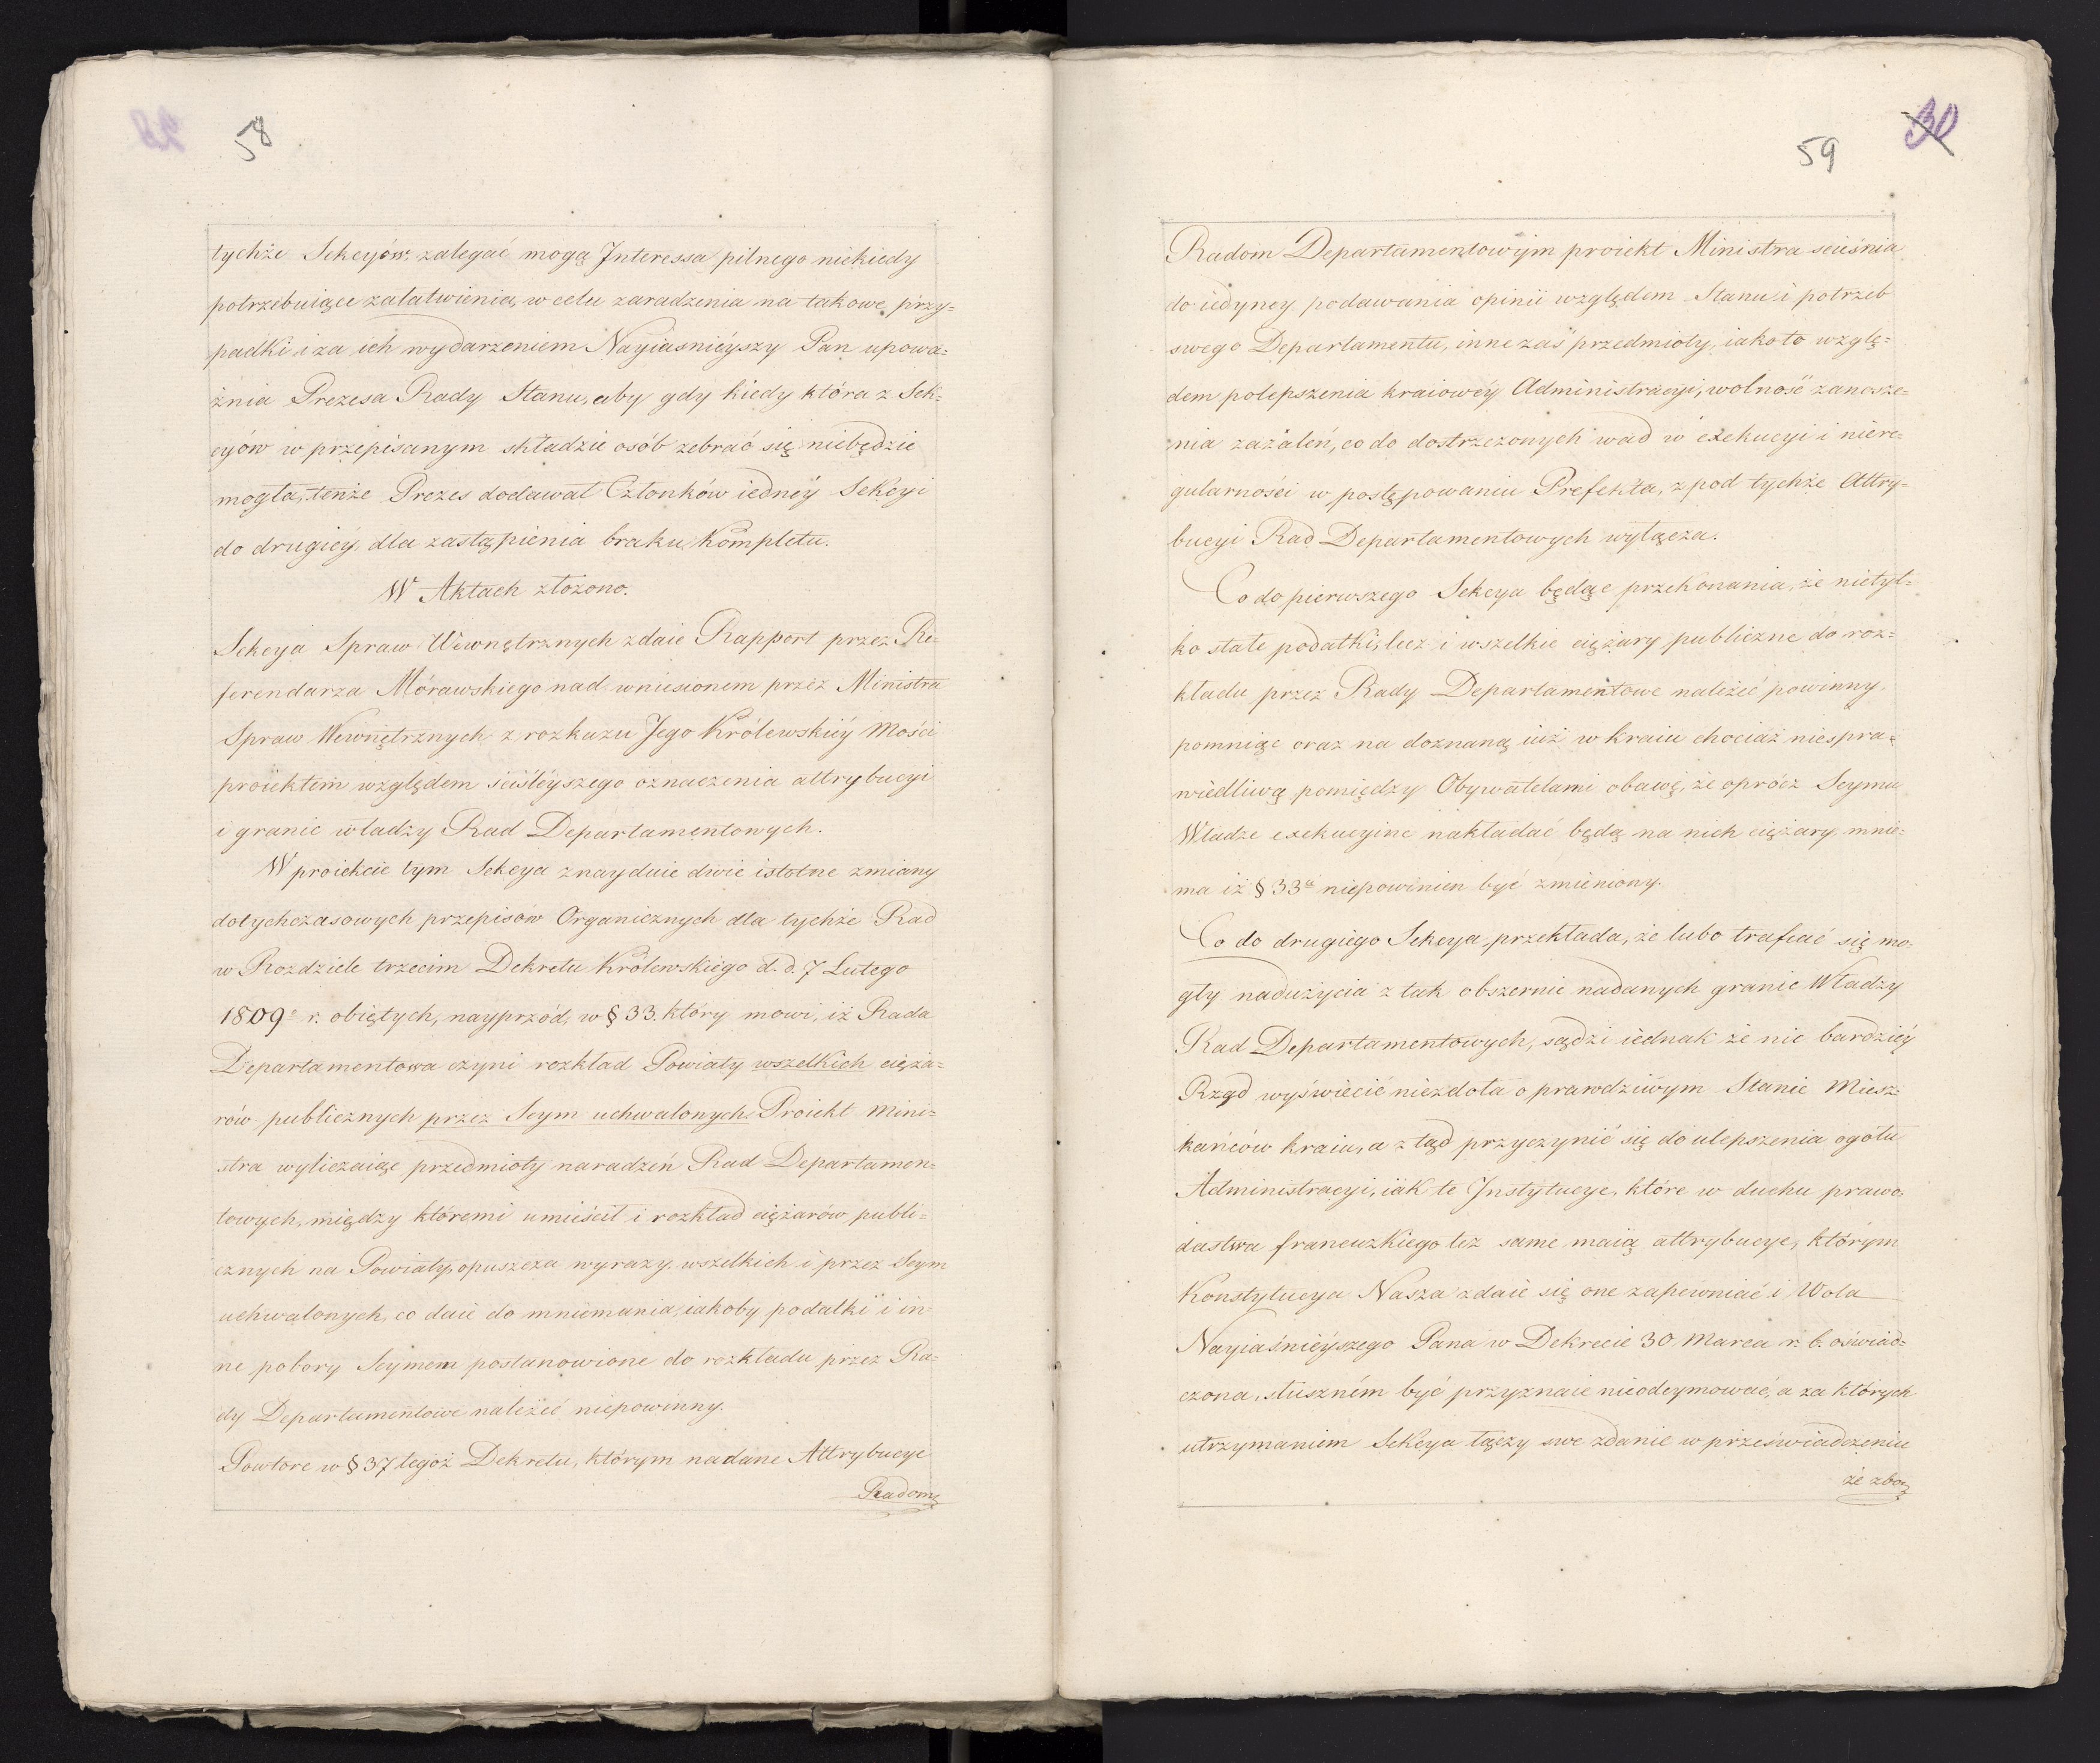 58
tychże Sekcyów zalegać mogą Interessa pilnego niekiedy
potrzebuiące załatwienia, w celu zaradzenia na takowe przy=
padki i za ich wydarzeniem Nayiasnièyszy Pan upowa=
żnia Prezesa Rady Stanu, aby gdy kiedy która z Sek=
cyów w przepisanym składzie osób zebrać się niebędzie
mogła, tenże Prezes dodawał Członków iednèy Sekcyi
do drugièy dla zastąpienia braku Kompletu.
W Aktach złożono.
Sekcya Spraw Wewnętrznych zdaie Rapport przez Re=
ferendarza Mórawskiego nad wniesionem przez Ministra
Spraw Wewnętrznych z rozkazu Jego Królewskièy Mości
proiektem względem ściślèyszego oznaczenia attrybucyi
i granic władzy Rad Departamentowych.
W proiekcie tym Sekcya znayduie dwie istotne zmiany
dotychczasowych przepisów Organicznych dla tychże Rad
w Rozdziele trzecim Dekretu Królewskiego d. d. 7 Lutego
1809 r. obiętych, nayprzód, w § 33. który mowi, iż Rada
Departamentowa czyni rozkład Powiaty wszelkich cięża=
rów publicznych przez Seym uchwalonych. Proiekt Mini=
stra wyliczaiąc przedmioty naradzeń Rad Departamen=
towych, między któremi umieścił i rozkład ciężarów publi=
cznych na Powiaty, opuszcza wyrazy wszelkich i przez Seym
uchwalonych, co daie do mniemania, iakoby podatki i in=
ne pobory Seymem postanowione do rozkładu przez Ra=
dy Departamentowe należeć niepowinny.
Powtore w § 37 tegoż Dekretu, którym nadane Attrybucye
Radom
59
30
Radom Departamentowym proiekt Ministra scieśnia
do iedyney podawania opinii względem Stanu i potrzeb
swego Departamentu, inne zaś przedmioty, iako to wzglę=
dem polepszenia kraiowèy Administracyi, wolność zanosze=
nia zażaleń, co do dostrzeżonych wad w exekucyi i niere=
gularności w postępowaniu Prefekta, z pod tychże Attry=
bucyi Rad Departamentowych wyłącza.
Co do pierwszego Sekcya będąc przekonania, że nietyl=
ko stałe podatki, lecz i wszelkie ciężary publiczne do roz=
kładu przez Rady Departamentowe należeć powinny,
pomniąc oraz na doznaną iuż w kraiu chociaż niespra=
wiedliwą pomiędzy Obywatelami obawę, że oprócz Seymu
Władze exekucyine nakładać będą na nich ciężary, mnie=
ma iż § 33 niepowinien być zmieniony.
Co do drugiego Sekcya przekłada, że lubo trafiać się mo=
gły nadużycia z tak obszernie nadanych granic Władzy
Rad Departamentowych, sądzi iednak że nic bardzièy
Rząd wyświecić niezdoła o prawdziwym Stanie Miesz=
kańców kraiu, a z tąd przyczynić się do ulepszenia ogółu
Administracyi, iak te Instytucye, które w duchu prawo=
dastwa francuzkiego też same maią attrybucye, którym
Konstytucya Nasza zdaie się one zapewniać i Wola
Nayiaśnièyszego Pana w Dekrecie 30 Marca r. b. oświad=
czona, słuszném być przyznaie nieodeymować, a za których
utrzymaniem Sekcya łączy swe zdanie w przeświadczeniu
że zbo